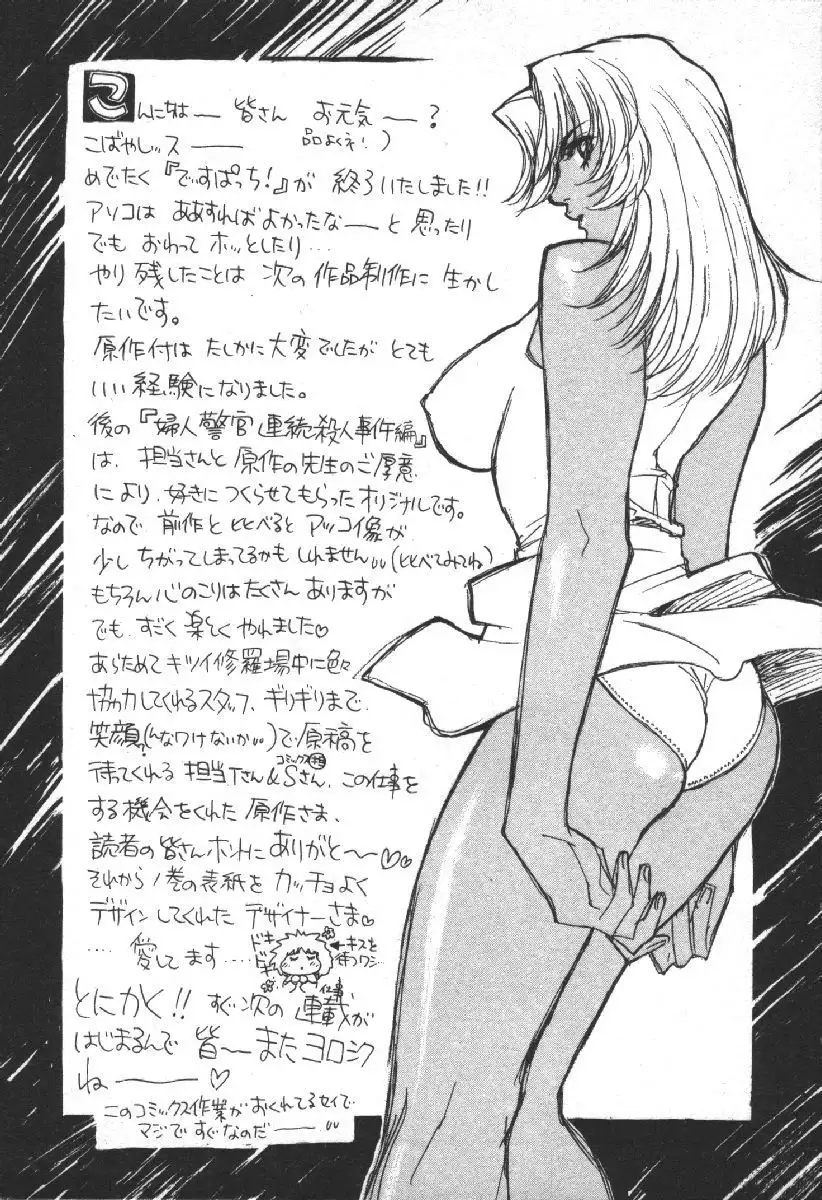 こんにちはー 皆さん お元気ー?
こばやしッスー 品よくネ!)
めでたく『でぃすぱっち!』が 終了いたしました!!
アソコは ああすればよかったなーと 思ったり
でも おわって ホッとしたり…
やり残したことは 次の作品制作に 生かし
たいです。
原作付は たしかに大変でしたが とても
いい経験になりました。
後の『婦人警官連続殺人事件編』
は、担当さんと原作の先生のご厚意
により、好きにつくらせてもらったオリジナルです。
なので 前作と比べると アッコイ象が
少し ちがってしまってるかも しれません(比べてみてね)
もちろん心のこりはたくさん ありますが
でも、すごく楽しくやれました♡
あらためて キツイ修羅場中に色々
協力してくれるスタッフ、ギリギリまで
笑顔?(んなワけないか)で原稿を
待ってくれる 担当Tさん&コミックス担当Sさん、この仕事を
する機会をくれた 原作さま、
読者の皆さんホントに ありがと〜♡♡
それから1巻の表紙を カッチョよく
デザインしてくれた デザイナーさま♡
…愛してます…
ドキ
ドキ
←キスを
待つワシ…
とにかく!! すぐ次の仕事(連載)が
はじまるんで 皆〜また ヨロシク
ねー♡
このコミックス作業が おくれてるセイで
マジで すぐなのだー